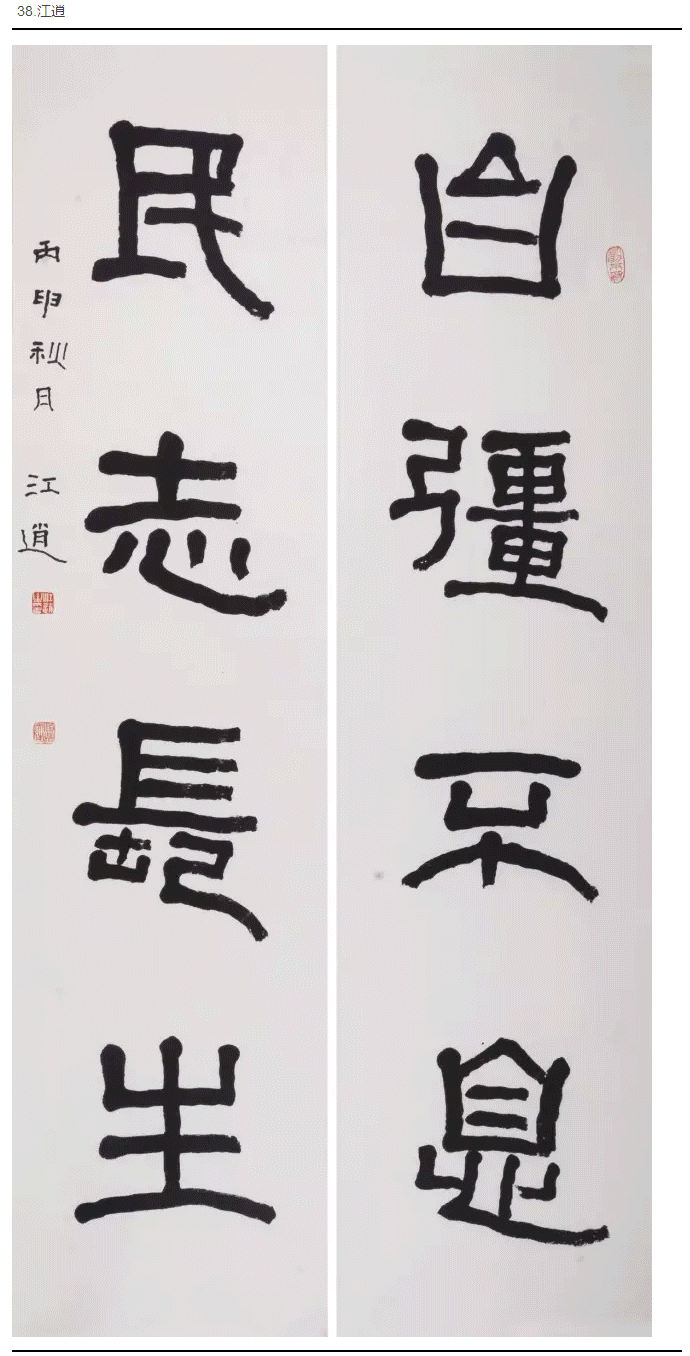 38.江逍
自彊不息
民志長生
丙申秋月 江逍